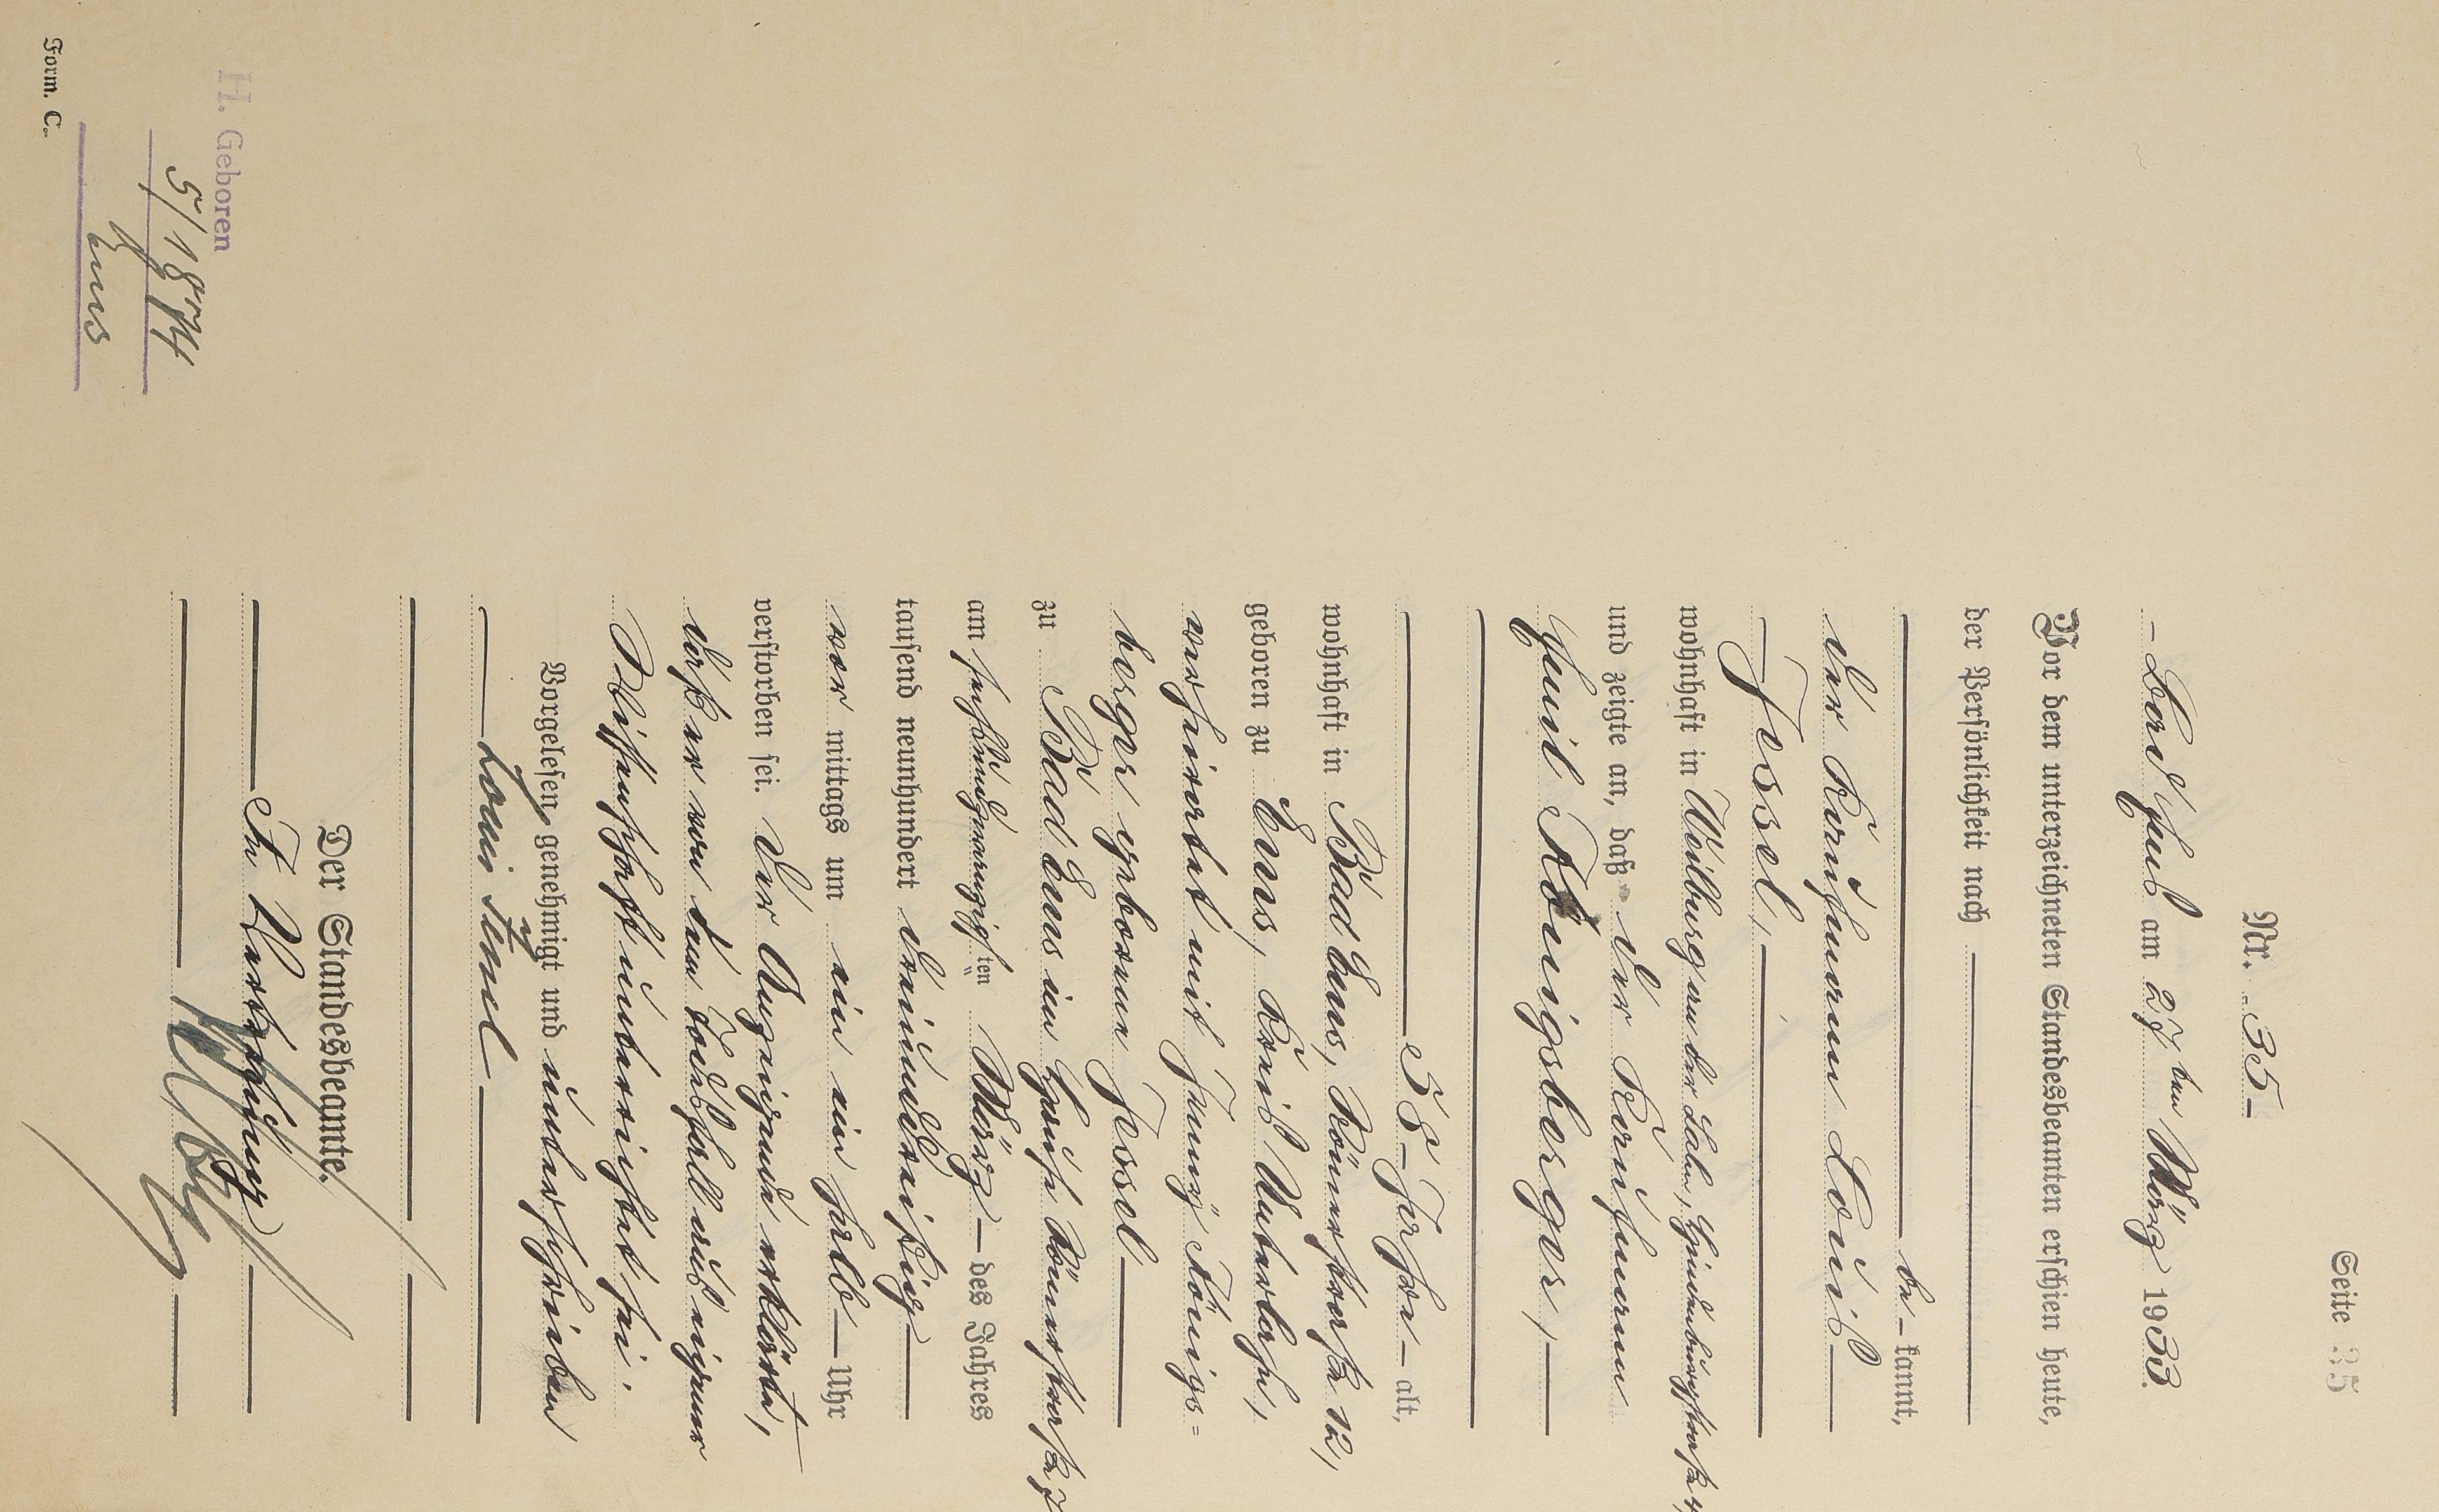 Seite 35
Nr. 35
Bad Ems am 27ten März 1933.
Vor dem unterzeichneten Standesbeamten erschien heute,
der Persönlichkeit nach
be-kannt,
der Kaufmann Louis
Jessel,
wohnhaft in Weilburg an der Lahn, Hindenburgstraße 4,
und zeigte an, daß der Kaufmann
Emil Königsberger,
58 Jahre alt,
wohnhaft in Bad Ems, Römerstraße 12,
geboren zu Ems, Kreis Unterlahn,
verheiratet mit Fanny Königs=
berger geborene Jessel
zu Bad Ems im Hause Römerstraße
am fünfundzwanzigsten März des Jahres
tausend neunhundert dreiunddreißig
vor mittags um ein ein halb Uhr
verstorben sei. Der Anzeigende erklärte,
daß er von dem Todesfall aus eigener
Wissenschaft unterrichtet sei.
Vorgelesen, genehmigt und unterschrieben
Louis Jessel
Der Standesbeamte.
In Vertretung
H. Geboren
5/1874
Ems
Form. C.